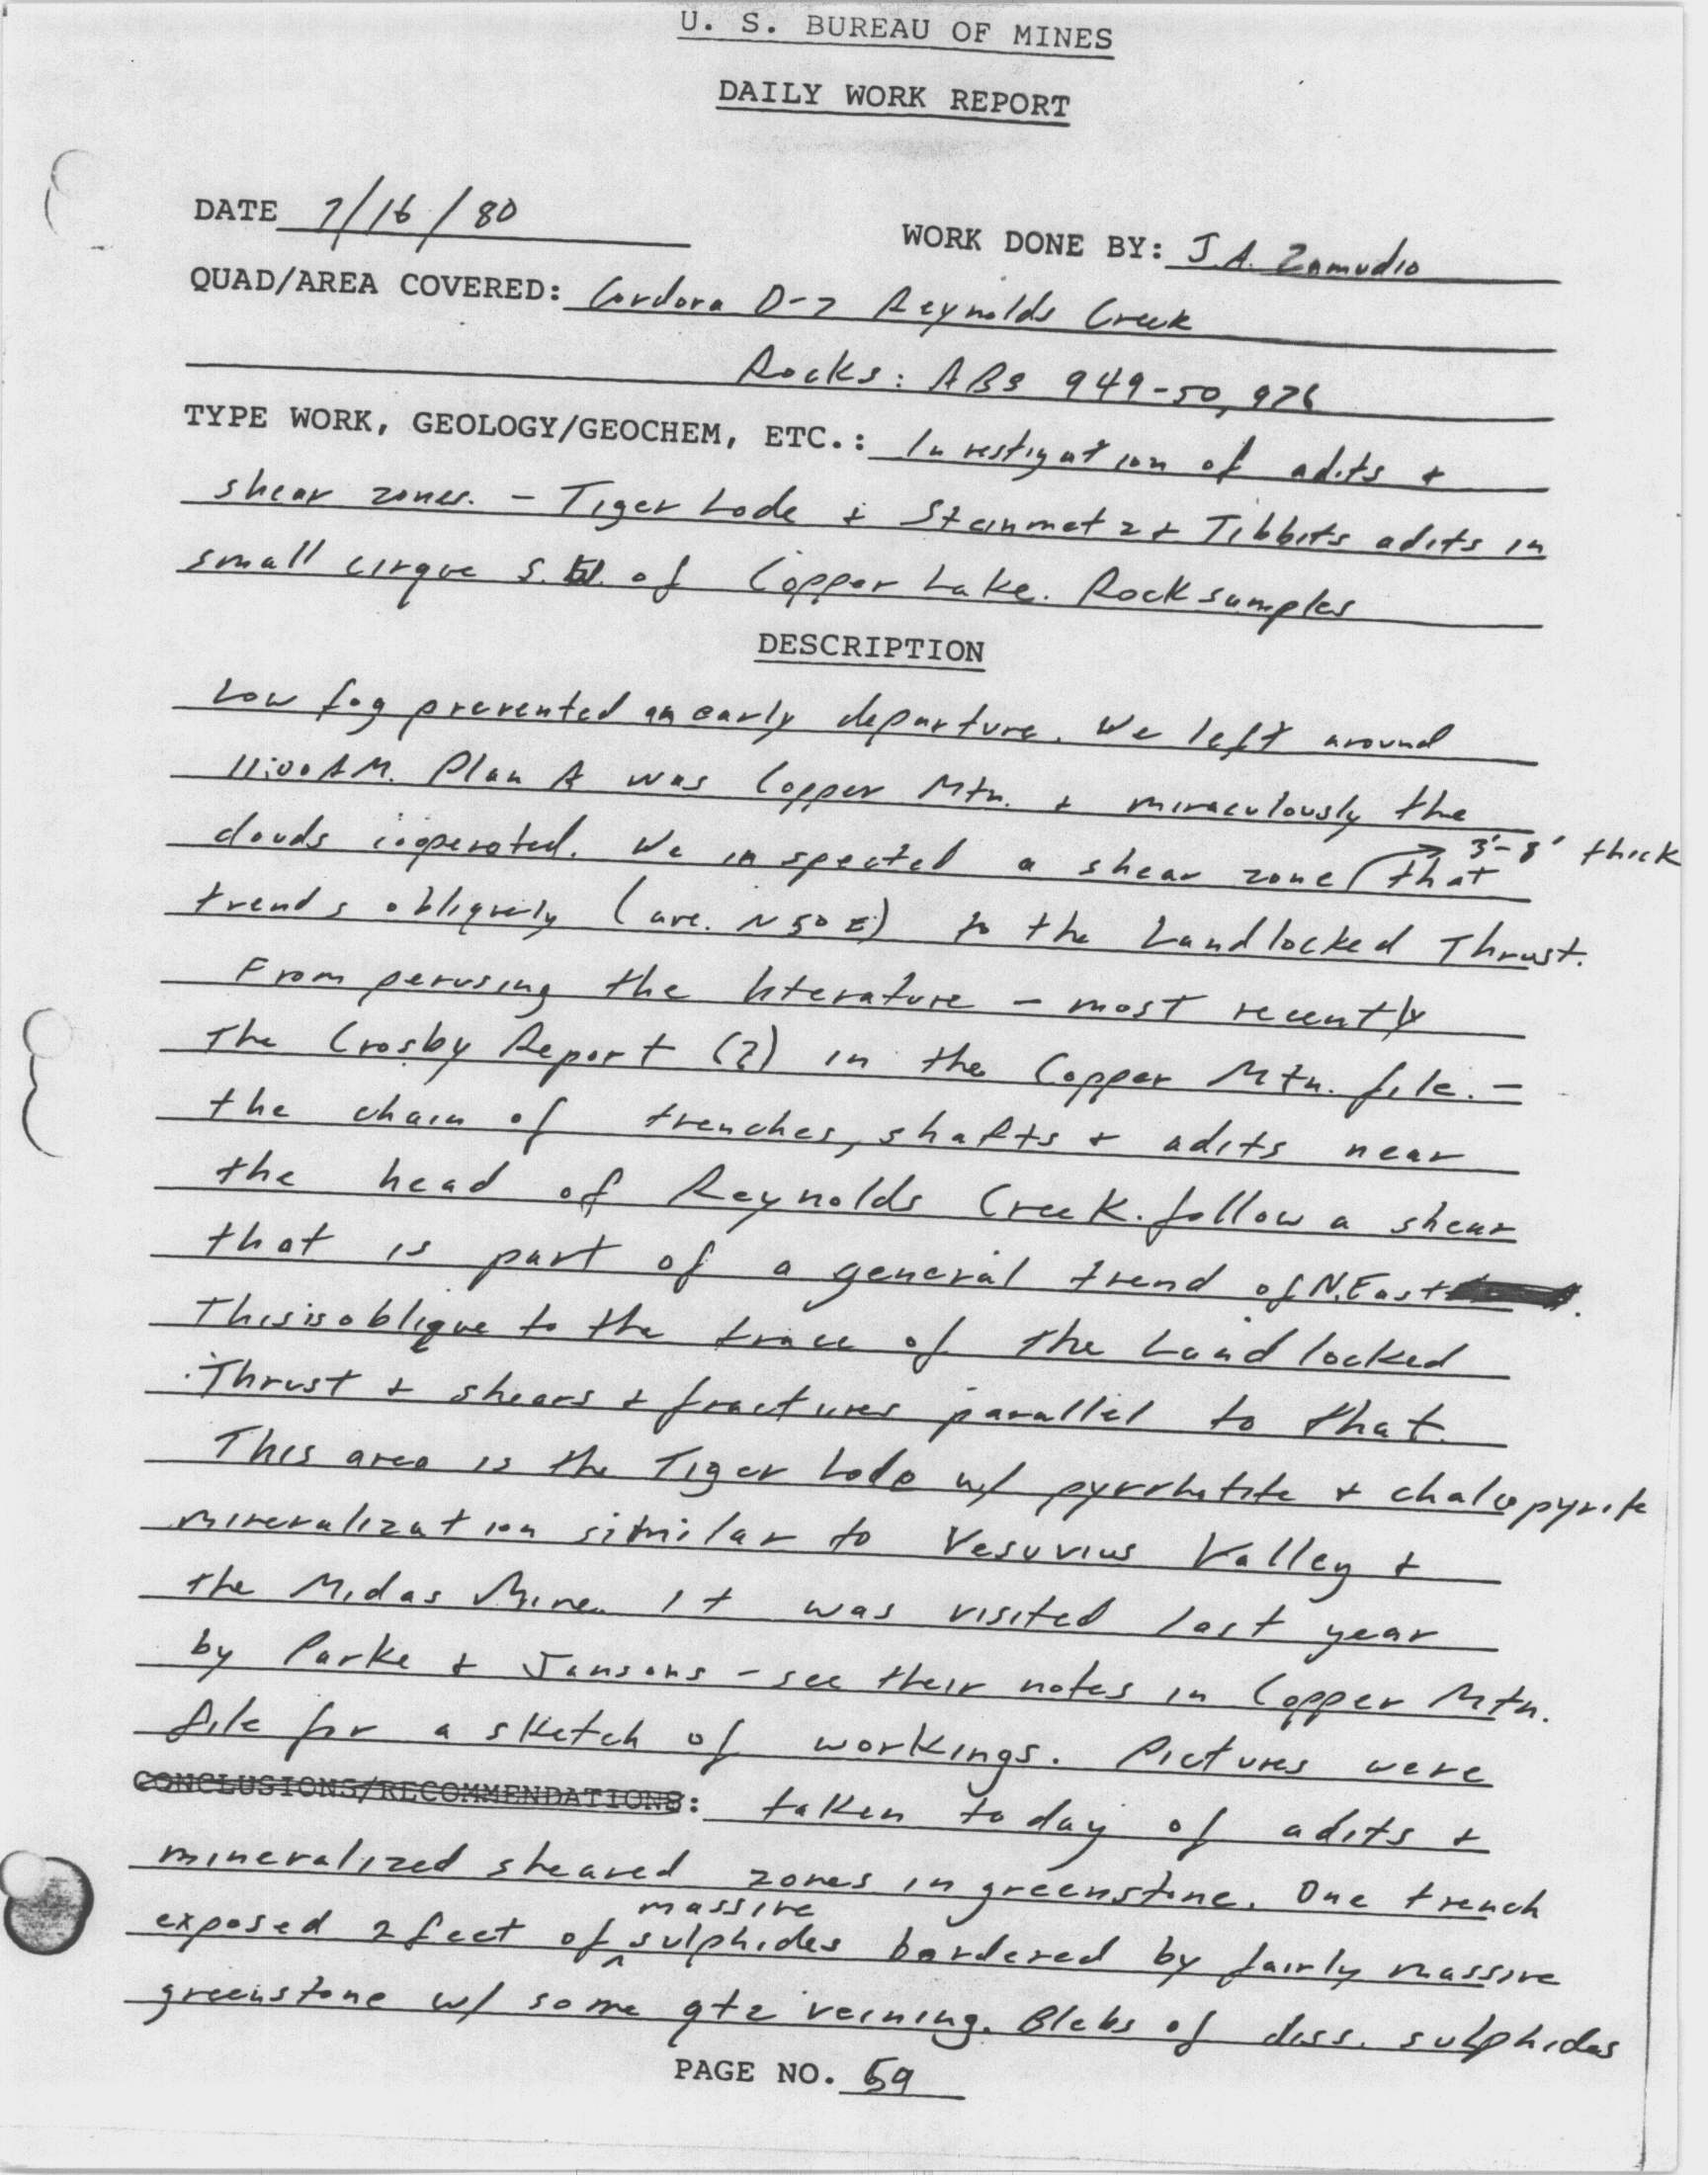 U. S. BUREAU OF MINES
DAILY WORK REPORT
DATE 7/16/80
WORK DONE BY: J.A. Zamudio
QUAD/AREA COVERED: Cordova D-7 Reynolds Creek
Rocks: ABS 949-50, 976
TYPE WORK, GEOLOGY/GEOCHEM, ETC.: Investigation of adits &
shear zones. - Tiger Lode & Steinmetz & Tibbits adits in
small cirque S. of Copper Lake. Rock samples
DESCRIPTION
Low fog prevented an early departure. We left around
11:00 AM. Plan A was Copper Mtn. & miraculously the
clouds cooperated. We inspected a shear zone 3'-8' thick that
trends obliquely (ave. N50E) to the Landlocked Thrust.
From perusing the literature - most recently
The Crosby Report (?) in the Copper Mtn. file. -
the chain of trenches, shafts & adits near
the head of Reynolds Creek. follow a shear
that is part of a general trend of N.East.
This is oblique to the trace of the Landlocked
Thrust & shears & fractures parallel to that.
This area is the Tiger Lode w/ pyrrhotite & chalcopyrite
mineralization similar to Vesuvius Valley &
the Midas Mine. It was visited last year
by Parke & Jansons - see their notes in Copper Mtn.
file for a sketch of workings. Pictures were
CONCLUSIONS/RECOMMENDATIONS: taken today of adits &
mineralized sheared zones in greenstone. One trench
exposed 2 feet of massive sulphides bordered by fairly massive
greenstone w/ some qtz veining. Blebs of diss. sulphides
PAGE NO. 59